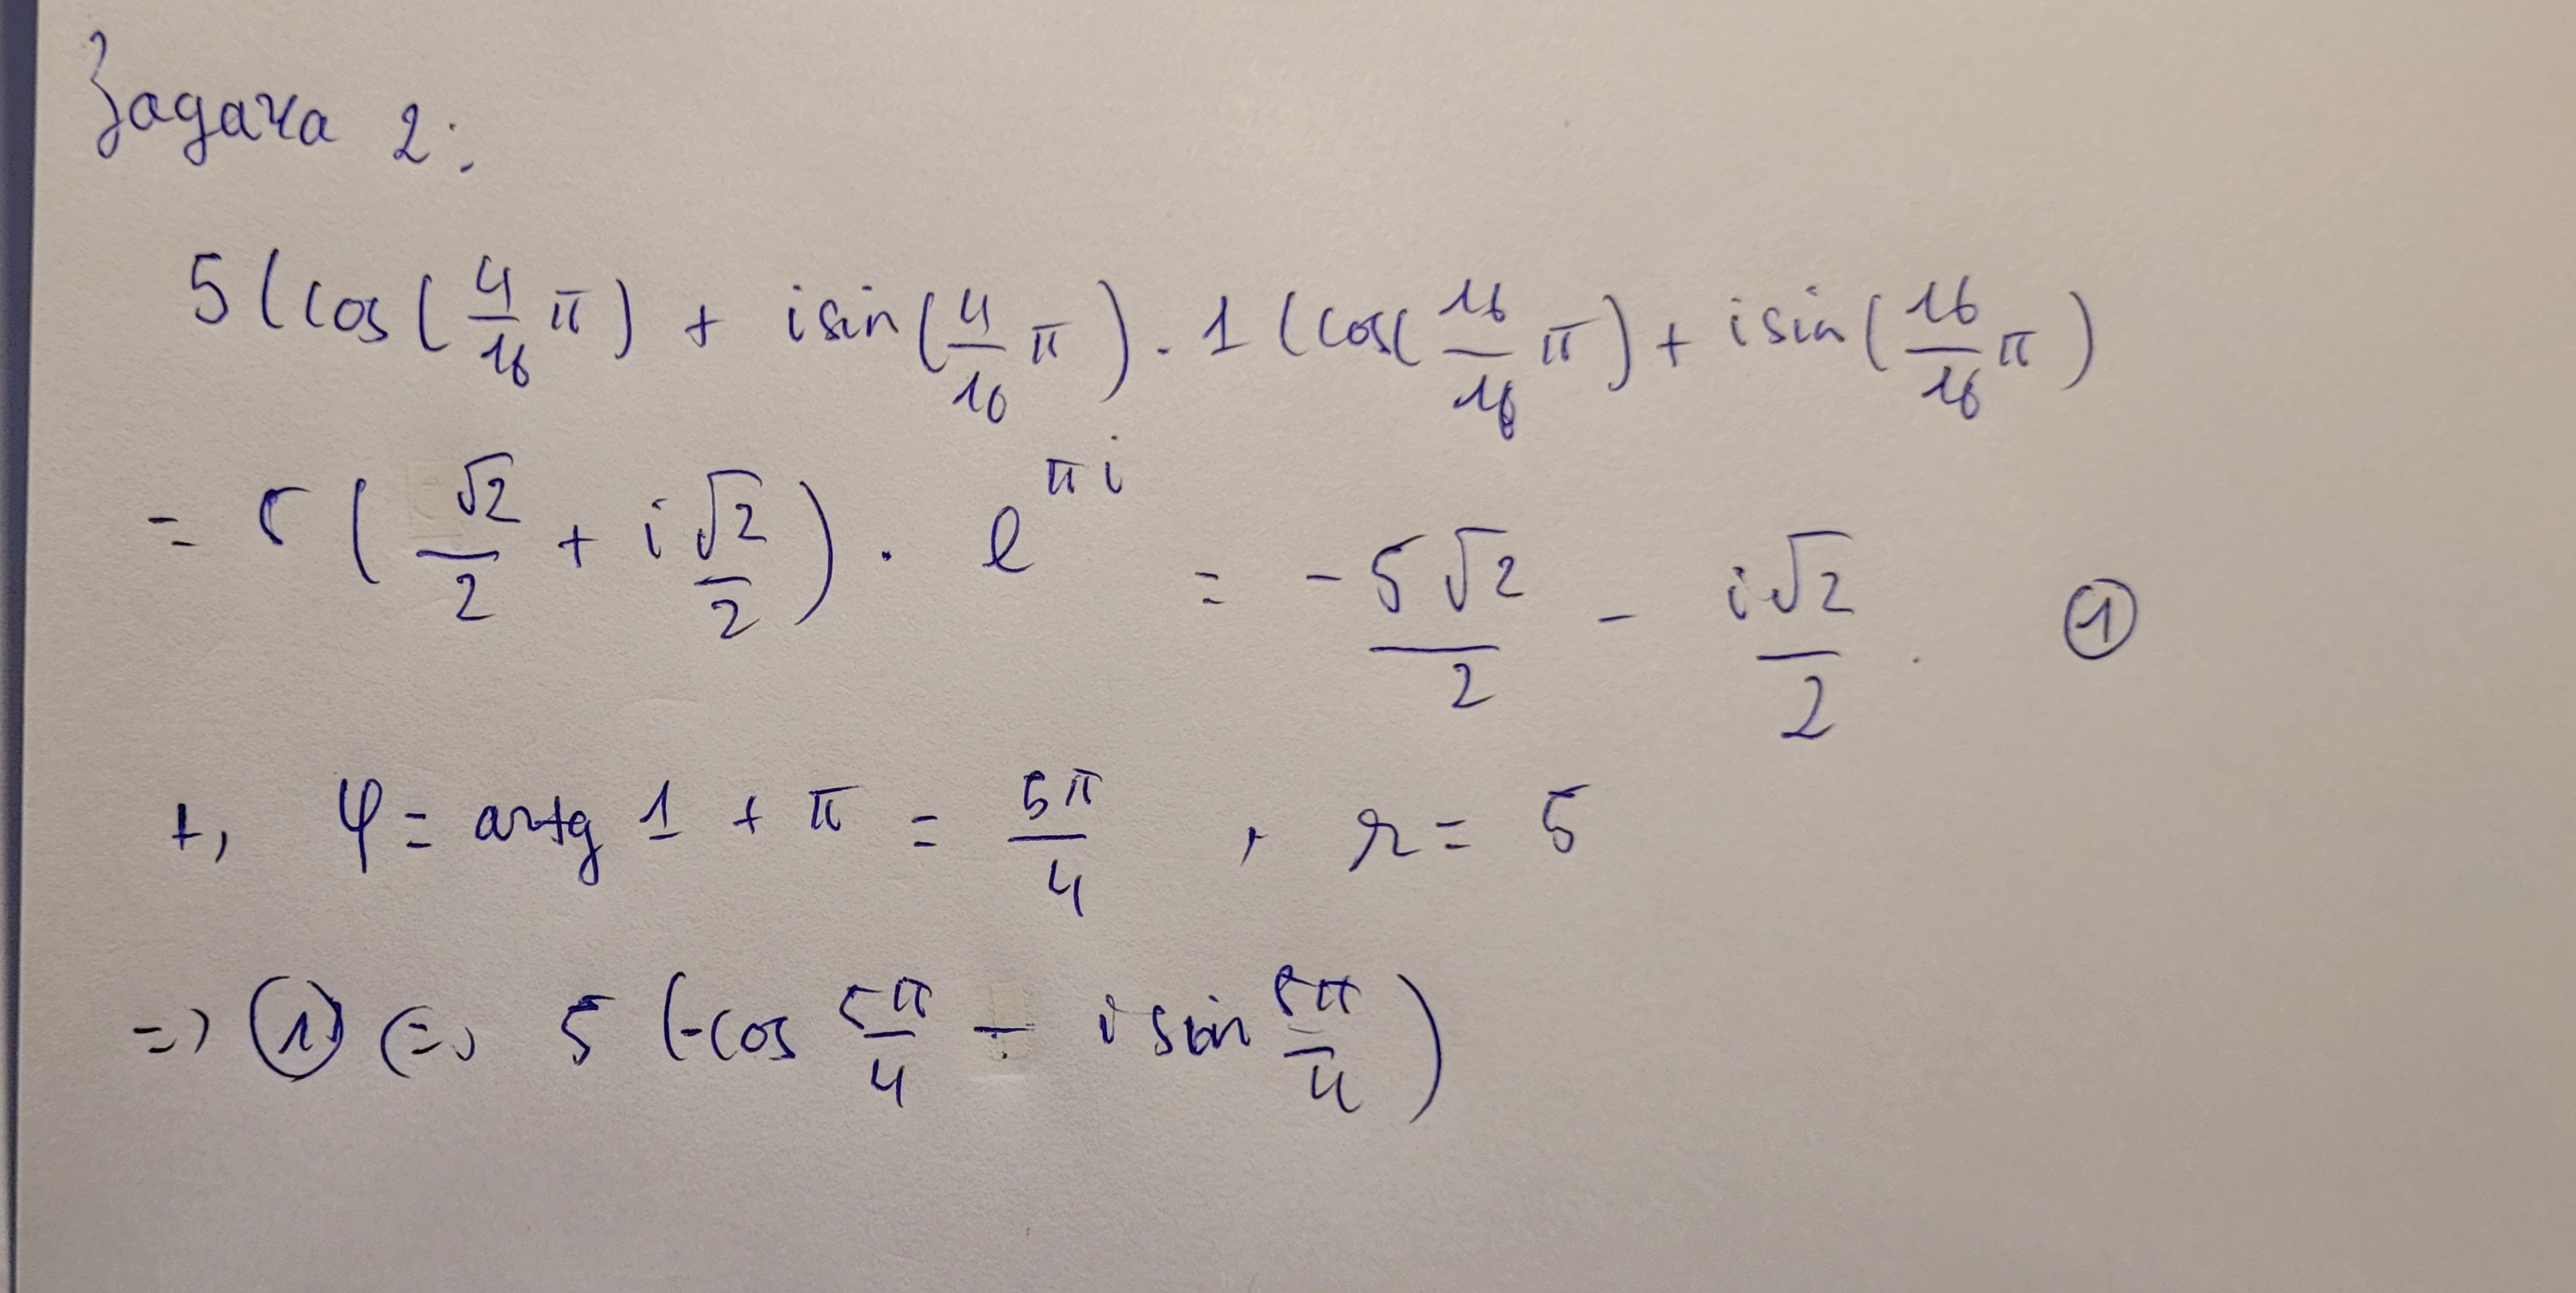 Задача 2:
5(cos(4/16 π) + i sin(4/16 π) . 1 (cos(16/16 π) + i sin(16/16 π)
= 5(√2/2 + i √2/2) . e^(πi) = -5√2/2 - i√2/2 . ①
+, φ = artg 1 + π = 5π/4 , r = 5
=> ① <=> 5 (-cos 5π/4 - i sin 5π/4)